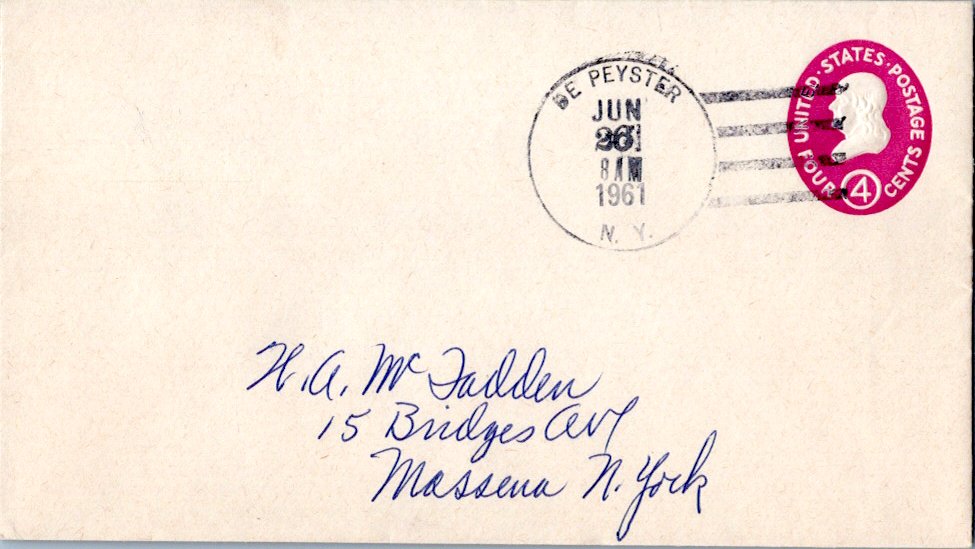 DE PEYSTER
JUN
26
8 AM
1961
N. Y.
UNITED · STATES · POSTAGE
FOUR 4 CENTS
H. A. McFadden
15 Bridges Ave
Massena N. York